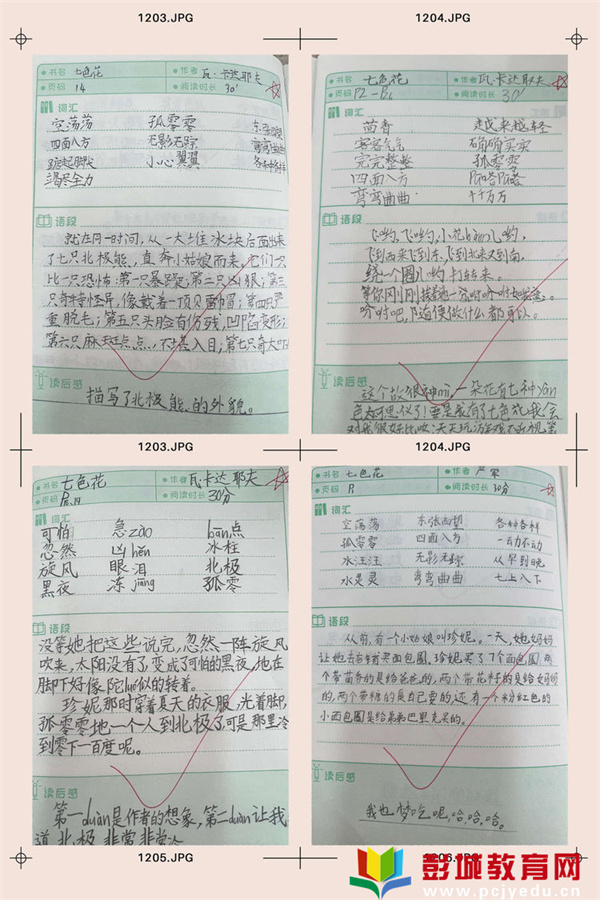 1203.JPG
1204.JPG
书名 七色花 作者 瓦·卡达耶夫
页码 14 阅读时长 30'
词汇
空荡荡 孤零零
四面八方 无影无踪 弯弯曲曲
踮起脚尖 小心翼翼 各种各样
竭尽全力
语段
就在同一时间,从一大堆冰块后面出来
了七只北极熊,直奔小姑娘而来,它们一只
比一只恐怖:第一只暴躁;第二只凶狠;第三
只,像戴着一顶贝雷帽;第四只严
重脱毛;第五只头脸百伤残,凹陷变形;
第六只麻斑点点,不堪入目;第七只
读后感
描写了北极熊的外貌。
书名 七色花 作者 瓦·卡达耶夫
页码 P2-P 阅读时长 30'
词汇
茴香 越来越轻
客客气气 确确实实
完完整整 孤零零
四面八方
弯弯曲曲 千千万万
语段
飞哟,飞哟,小花bàn儿哟,
飞到西来飞到东,飞到北来又到南,
绕一个圈儿哟,打转来。
等你刚刚挨着地
吩咐吧,
读后感
这个故很神mì,一朵花有七种yán
色太可思仪了!要是我有了七色花我会
1203.JPG
1204.JPG
书名 七色花 作者 瓦卡达耶夫
页码 阅读时长 30分
词汇
可怕 急zào bān点
忽然 凶hěn 冰柱
旋风 眼泪 北极
黑夜 冻jiāng 孤零
语段
没等她把这些说完,忽然一阵旋风
吹来,太阳没有了,变成了可怕的黑夜,地在
脚下好像陀luó似的转着。
珍妮那时穿着夏天的衣服,光着脚,
孤零零地一个人到北极了,可是那里冷
到零下一百度呢。
读后感
第一duàn是作者的想象,第二duàn让我
道北极非常非常冷
书名 七色花 作者 严军
页码 阅读时长 30分
词汇
空荡荡 东张西望 各种各样
孤零零 四面八方 一动不动
水汪汪 无影无踪 从早到晚
水灵灵 弯弯曲曲 七上八下
语段
从前,有一个小姑娘叫珍妮。一天,她妈妈
让她去店铺买面包圈,珍妮买了7个面包圈,两
个带茴香的是给爸爸的,两个带花籽的是给妈妈
的,两个带糖的是自己要的,还有一个粉红色的
小面包圈是给弟弟巴里克买的。
读后感
我也梦吃呢,哈,哈,哈。
1205.JPG
1206.JPG
彭城教育网
www.pcjyedu.cn